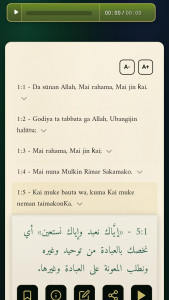 00:00 / 00:00
A- A+
1:1 - Da sũnan Allah, Mai rahama, Mai jin ƙai.
1:2 - Godiya ta tabbata ga Allah, Ubangijin
halittu;
1:3 - Mai rahama, Mai jin ƙai.
1:4 - Mai nuna Mulkin Rãnar Sakamako.
1:5 - Kai muke bauta wa, kuma Kai muke
neman taimakonKa.
5:1 - «إيَّاك نعبد وإياك نستعين» أي
نخصك بالعبادة من توحيد وغيره
ونطلب المعونة على العبادة وغيرها.